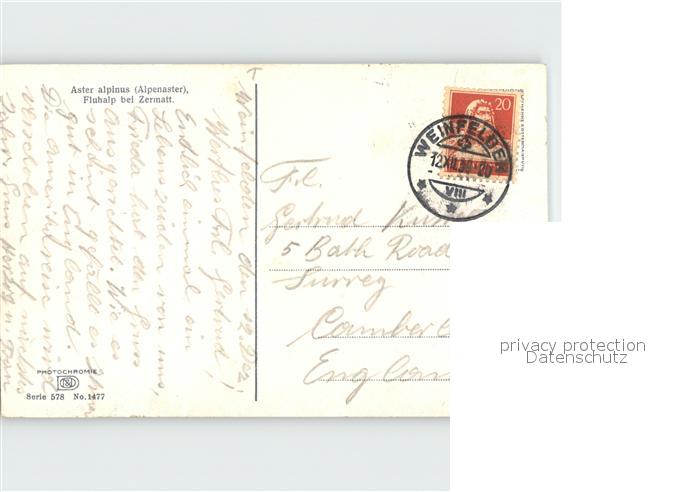 Aster alpinus (Alpenaster),
Fluhalp bei Zermatt.
Weinfelden den 12. Dez.
Wertes Frl Gertrud!
Endlich einmal ein
Lebenszeichen von uns,
Frieda hat den Gruss
ausgerichtet. Wie es
scheint gfällt es Ihnen
gut in England.
Die Amerikareise wird
verschoben auf nächstes
Jahr.
PHOTOCHROMIE
Serie 578 No. 1477
20
WEINFELDEN
12.XII.
VIII
Frl.
Gertrud
5 Bath Road
Surrey
Camberl
England
privacy protection
Datenschutz